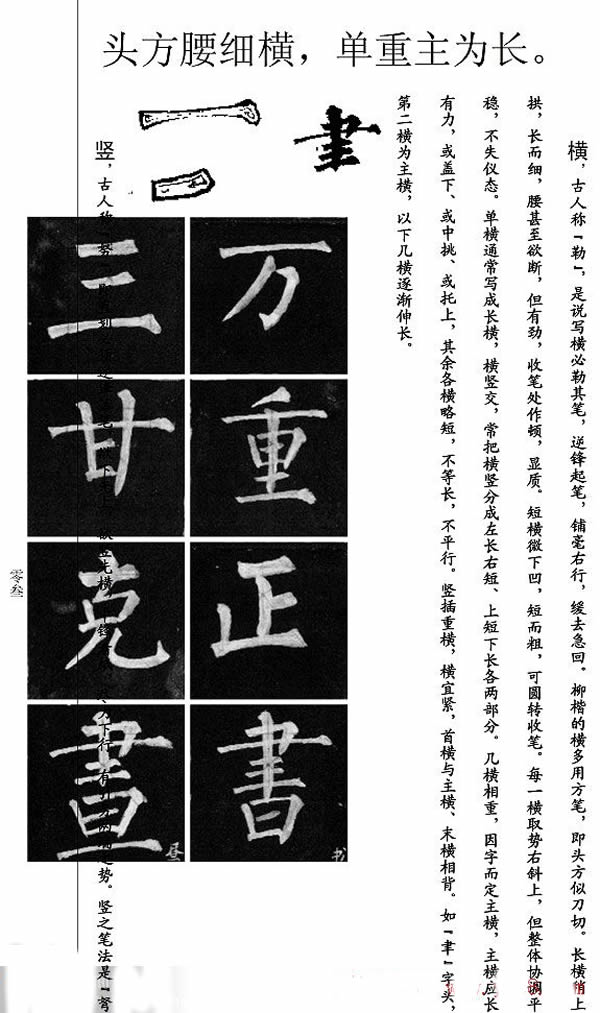 头方腰细横，单重主为长。
横，古人称「勒」，是说写横必勒其笔，逆锋起笔，铺毫右行，缓去急回。柳楷的横多用方笔，即头方似刀切。长横稍上
拱，长而细，腰甚至欲断，但有劲，收笔处作顿，显质。短横微下凹，短而粗，可圆转收笔。每一横取势右斜上，但整体协调平
稳，不失仪态。单横通常写成长横，横竖交，常把横竖分成左长右短、上短下长各两部分。几横相重，因字而定主横，主横应长
有力，或盖下、或中挑、或托上，其余各横略短，不等长，不平行。竖插重横，横宜紧，首横与主横、末横相背。如「聿」字头，
第二横为主横，以下几横逐渐伸长。
聿
万
重
正
書
书
三
甘
克
晝
昼
竖，古人称「努
下行，有
势。竖之笔法是「弩
零叁